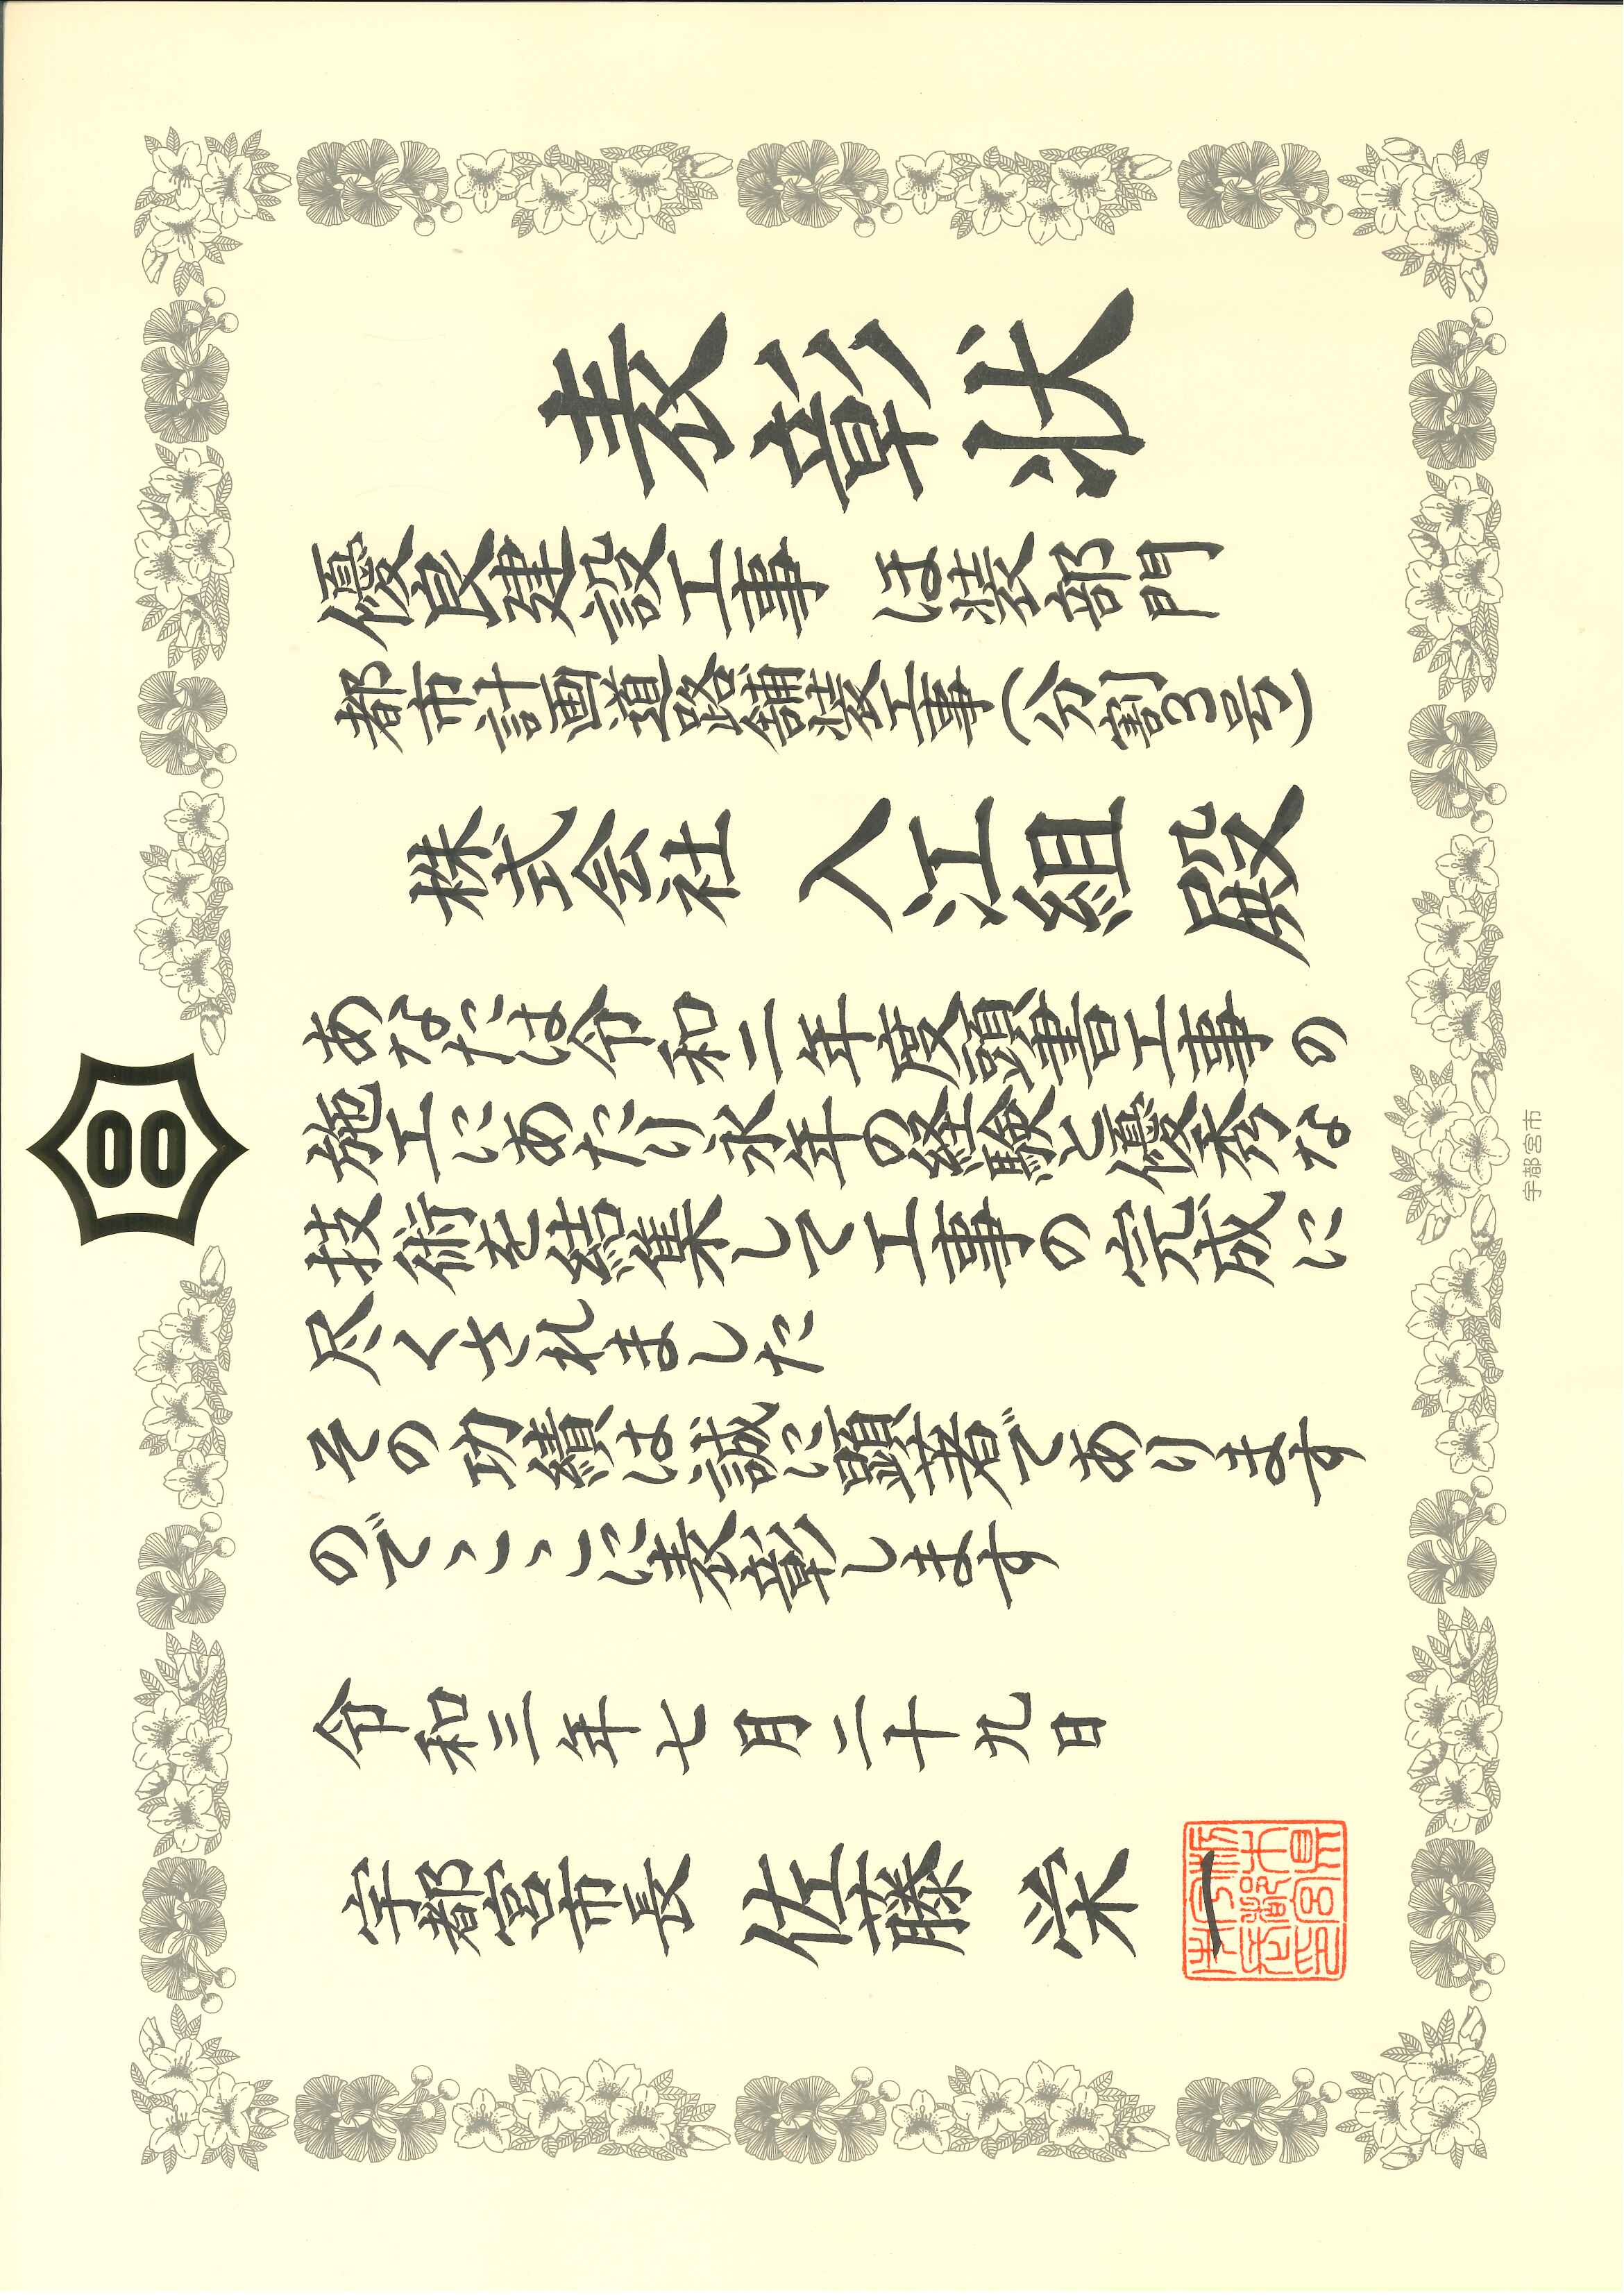 表彰状
優良建設工事 ほ装部門
都市計画道路舗装工事(分割3号)
株式会社 入江組 殿
あなたは令和二年度頭書工事の
施工にあたり永年の経験と優秀な
技術を結集して工事の完成に
尽くされました
その功績は誠に顕著であります
のでここに表彰します
令和三年七月二十九日
宇都宮市長 佐藤 栄一
宇都宮市